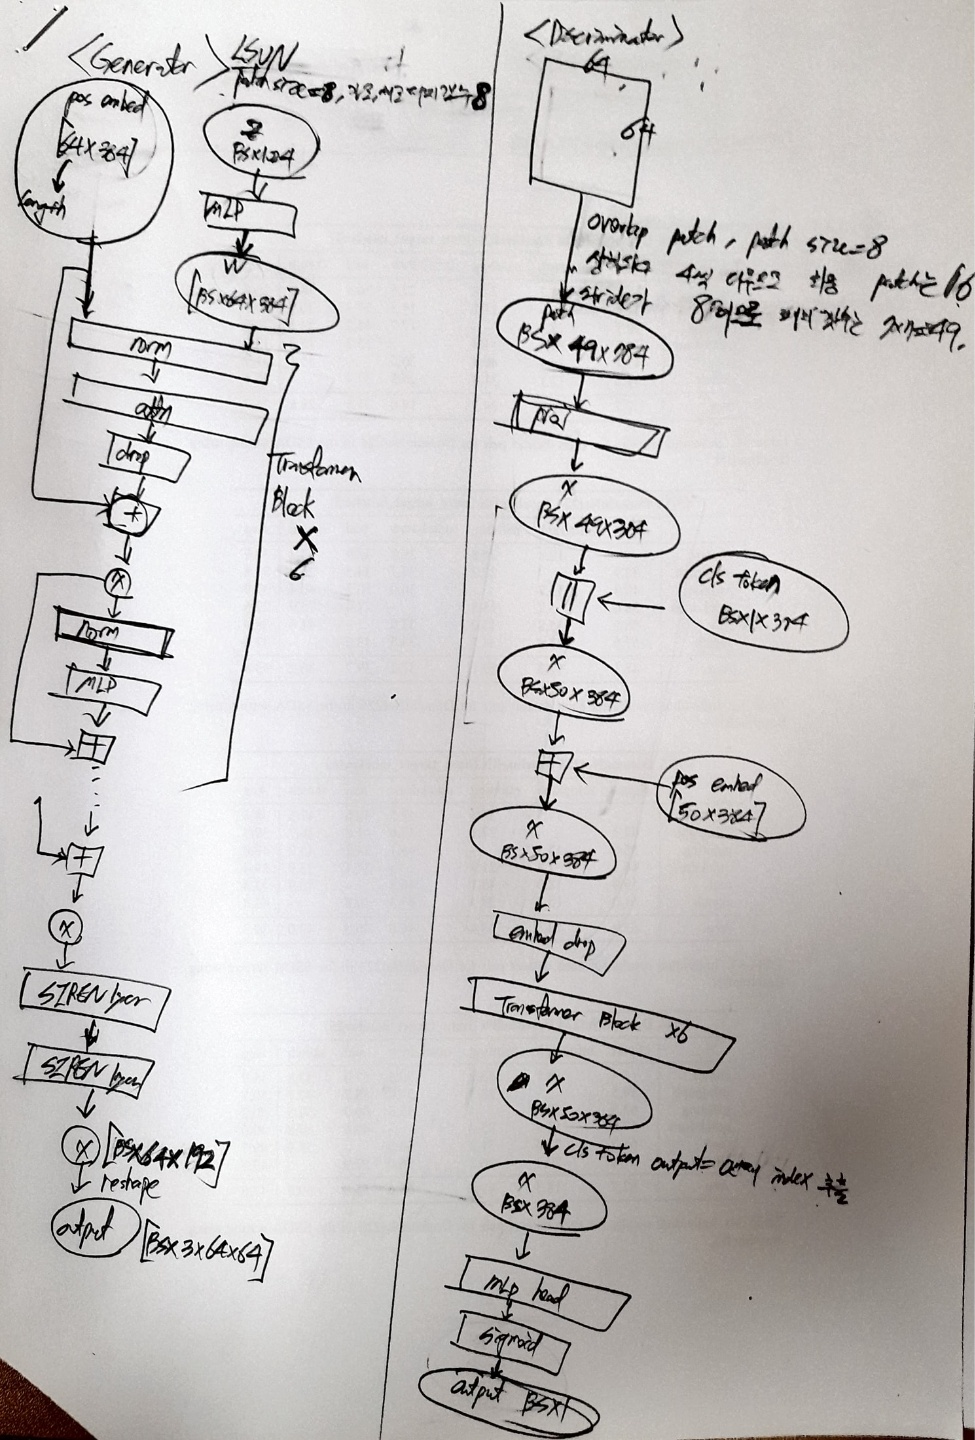 <Generator>
LSUN
patch size=8, 가로, 세로 패치 갯수 8
pos embed
[64×384]
length
z
BS×1024
MLP
W
[BS×64×384]
norm
attn
drop
+
Transformer
Block
×
6
x
norm
MLP
+
+
x
SIREN layer
SIREN layer
x [BS×64×192]
reshape
output [BS×3×64×64]
<Discriminator>
64
64
overlap patch, patch size=8
4씩 patch는 16
stride가 8 7×7=49.
patch
BS× 49×784
proj
x
BS× 49×384
||
cls token
BS×1×384
x
BS×50×384
+
pos embed
[50×384]
x
BS×50×384
embed drop
Transformer Block ×6
x
BS×50×384
cls token output= 0 index 추출
x
BS×384
MLP head
sigmoid
output BS×1